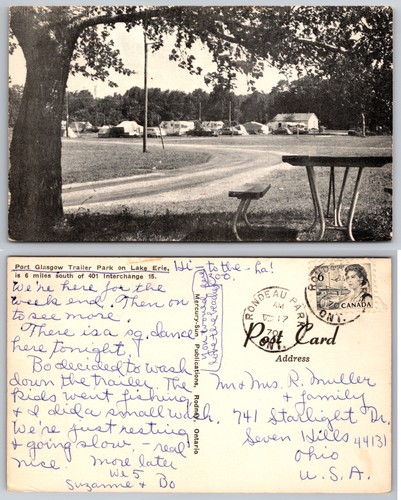 Port Glasgow Trailer Park on Lake Erie,
is 6 miles south of 401 Interchange 15.
Hi-to-the-ha!
We're here for the
week end. Then on
to see more.
There is a sq. dance
here tonight,
Bo decided to wash
down the trailer. The
kids went fishing,
& I did a small wash.
We're just resting
& going slow. - real
nice. More later
We 5
Suzanne & Bo
3,300.
Mercury-Sun Publications, Rodney, Ontario
RONDEAU PARK
AM
17
70
ONT.
ONT.
CANADA
Post Card
Address
Mr & Mrs. R. Muller
& family
741 Starlight Dr.
Seven Hills 44131
Ohio
U.S.A.